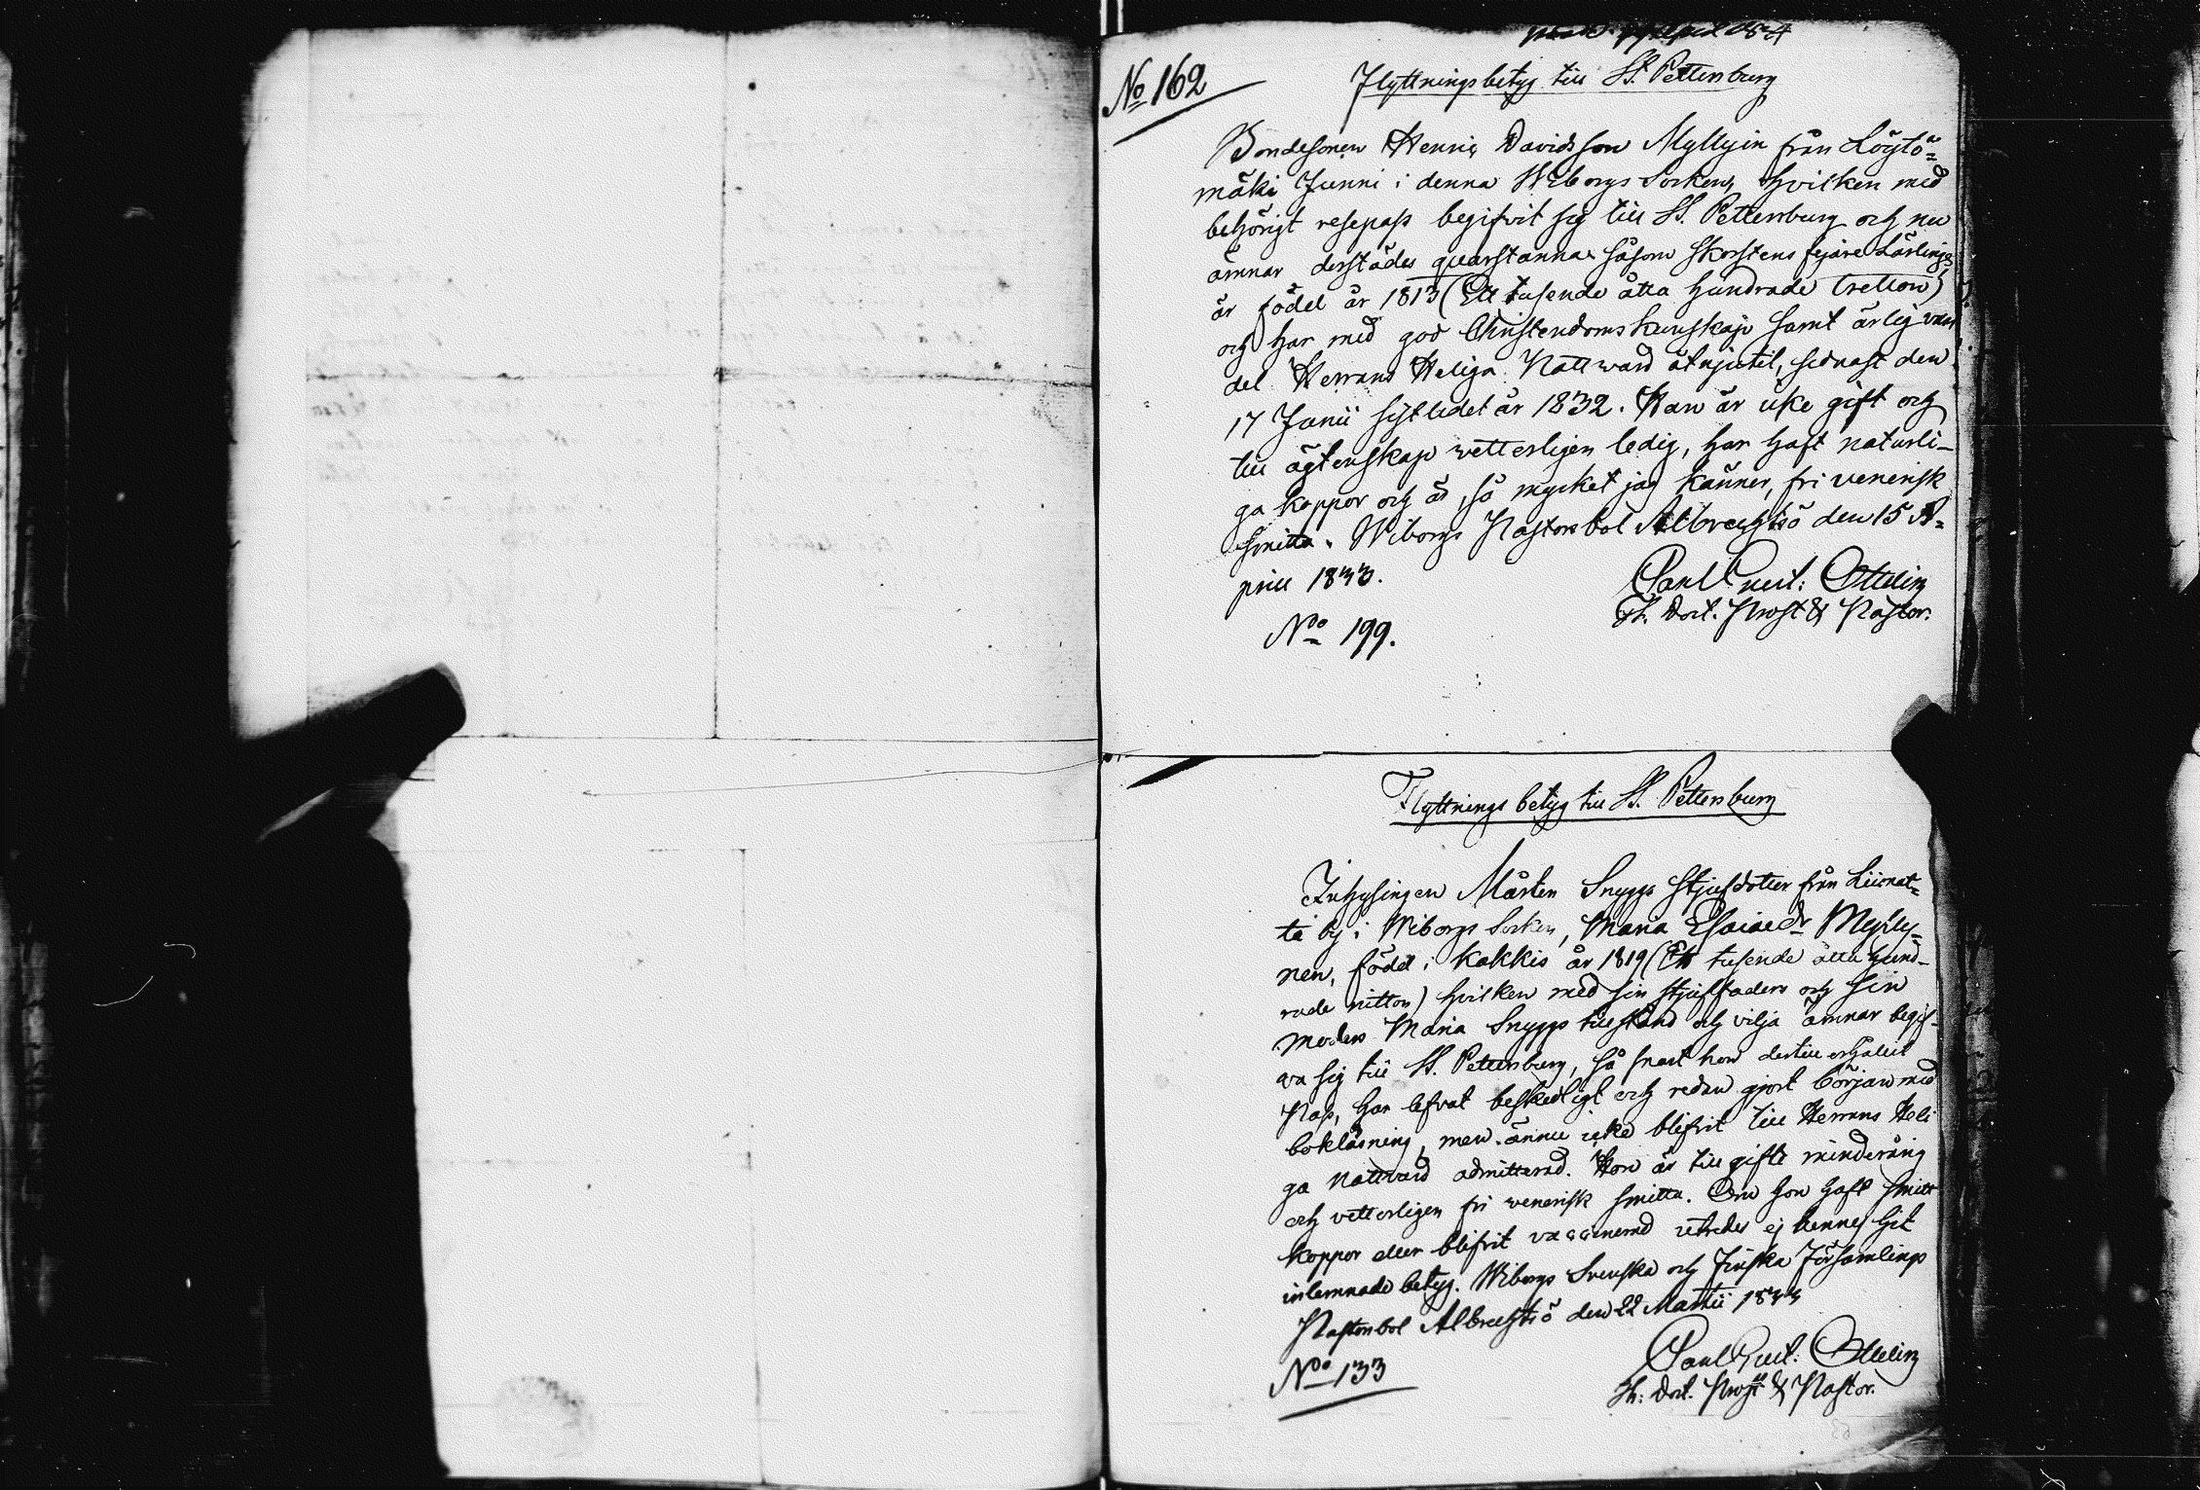 No 162
Flyttningsbetyg till St. Pettersburg
Bondesonen Henric Davidsson Myllyin från Löytö=
mäki Junni i denna Wiborgs Socken, hvilken med
behörigt resepass begifvit sig till St. Pettersburg och nu
ämnar derstädes quarstanna såsom Skorstens fejare Lärlinge
är född år 1813 (Ett tusende åtta hundrade tretton)
och har med god Christendoms kunskap samt ärlig van
del Herrans Heliga Nattward åtnjutit, sednast den
17 Junii sistledet år 1832. Han är icke gift och
till ägtenskap wetterligen ledig, har haft naturli-
ga koppor och är, så mycket jag känner, fri venerisk
smitta. Wiborgs Pastorsbol Albrechtsö den 15 A=
prill 1833.
Carl Gust: Ottelin
Th. Doct. Prost & Pastor.
No 199.
Flyttnings betyg till St. Pettersburg
Inhysingen Mårten Snyggs Stjufdotter från Liimat=
ta by i Wiborgs Socken, Maria Esaiaedr Mylly=
nen, född i Kakkis år 1819 (Ett tusende åtta hund-
rade nitton) hvilken med sin stjuffaders och sin
moders Maria Snyggs tillstånd och vilja ämnar begif-
va sig till St. Pettersburg, så snart hon dertill erhållit
Pass, har lefvat beskedligt och redan gjort början med
bokläsning, men ännu icke blifvit till Herrans Heli
ga Nattvard admitterad. Hon är till gifte minderårig
och vetterligen fri venerisk smitta. Om hon haft smitt
koppor eller blifvit vaccinerad utredes ej hennes hit
inlemnade betyg. Wiborgs Svenska och Finska Församlings
Pastorsbol Albrechtsö den 22 Martii 1833
Carl Gust: Ottelin
Th: Doct. Prost & Pastor.
No 133